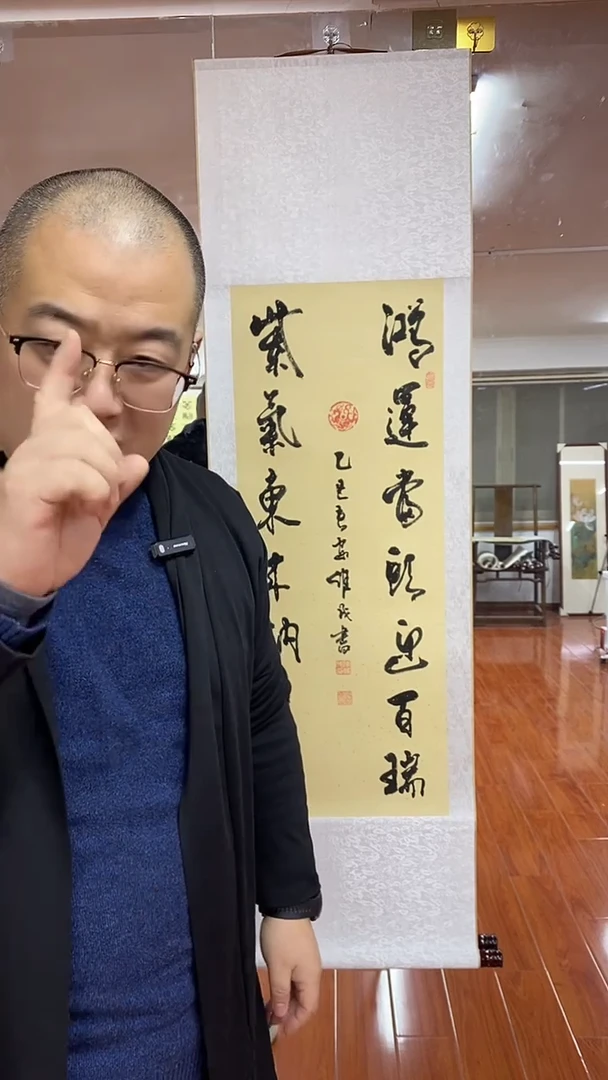 鴻運當頭迎百瑞
乙巳春 書
紫氣東來納